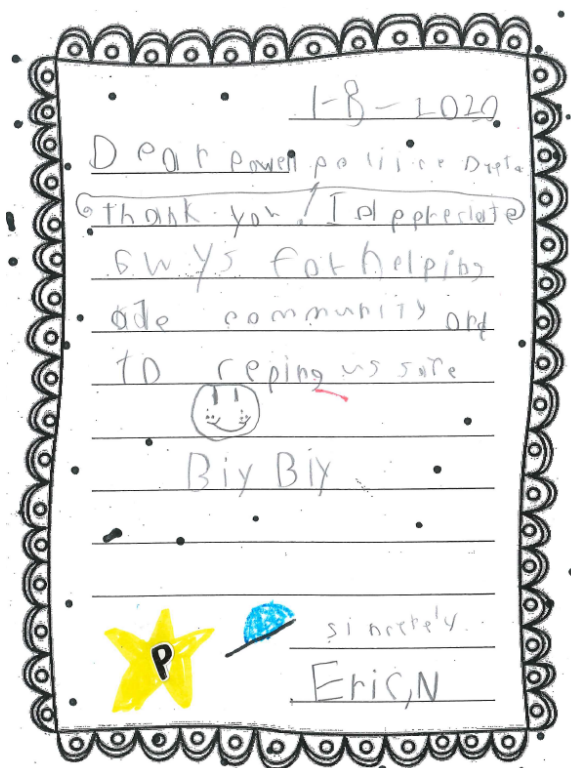 1-8-2020
Dear Powell police Dret.
thank you! I appreciate
Gwys for helping
ade community and
to reping us safe
Biy Biy
P
sincrely
Eric,N